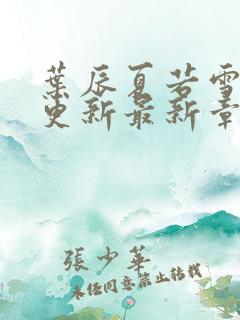 葉辰夏若雪
更新最新章
張少華
未經同意禁止轉載